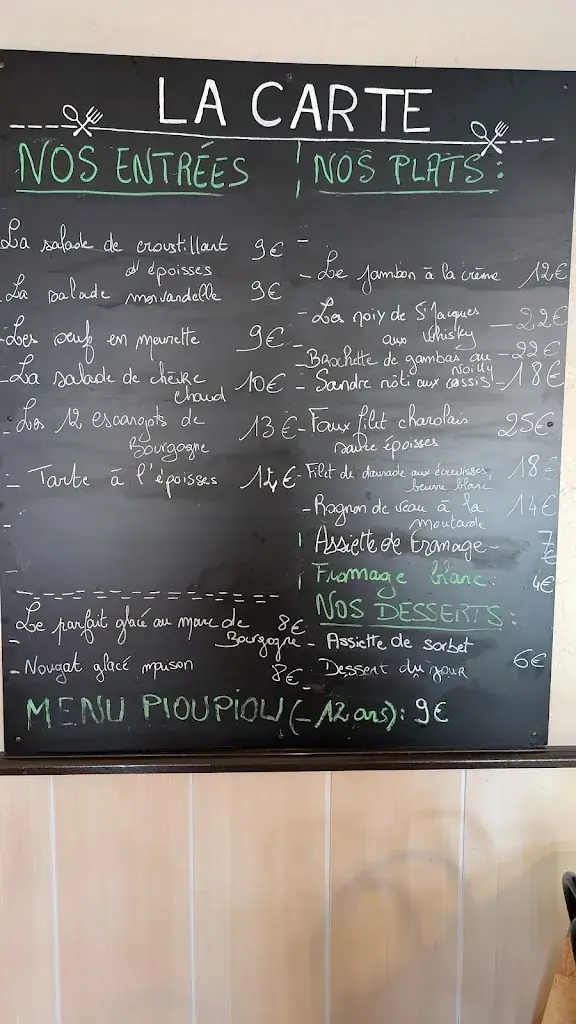 LA CARTE
NOS ENTRÉES
La salade de croustillant 9€
d'époisses
- La salade morvandelle 9€
- Les oeuf en meurette 9€
- La salade de chèvre 10€
chaud
- Les 12 escargots de 13€
Bourgogne
- Tarte à l'époisses
Le parfait glacé au marc de 8€
Bourgogne
- Nougat glacé maison 8€
NOS PLATS :
- Le jambon à la crème 12€
- Les noix de St Jacques 22€
aux Whisky
- Brochette de gambas au 22€
Noilly
- Sandre rôti aux cassis 18€
- Faux filet charolais 25€
sauce époisses
- Filet de daurade aux écrevisses, 18€
beurre blanc
- Rognon de veau à la 14€
moutarde
Assiette de Fromage - 7€
Fromage blanc : 4€
NOS DESSERTS :
- Assiette de sorbet
- Dessert du jour 6€
MENU PIOUPIOU (- 12 ans) : 9€